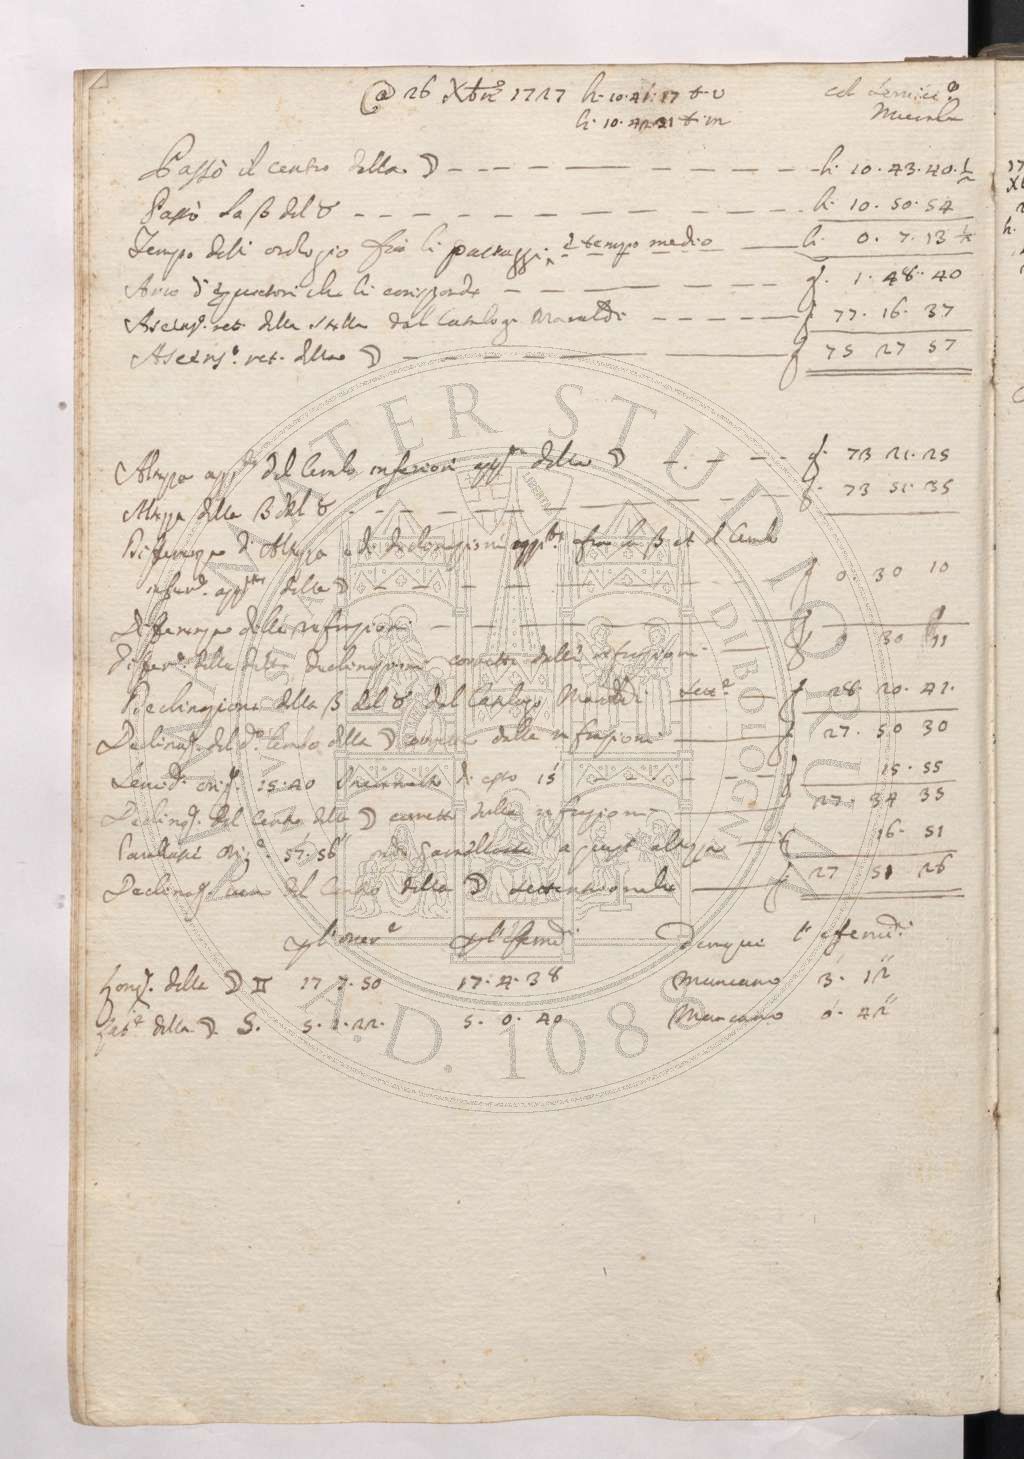 @ 26 Xbre 1727 h. 10. 41. 17 t. v
h. 10. 42 21 t. m
col Semicº
Murale
Passò il centro della ☽ h. 10. 43. 40. ½
Passò la β del ♉ h. 10. 50. 54
Tempo dell' orologio frà li passaggi, e tempo medio h. 0. 7. 13 ½
Arco d' Equatore che li corrisponde g. 1. 48. 40
Ascensº. ret. della stella dal Catalogo Manfredi g 77. 16. 37
Ascensº. ret. della ☽ g 75 27 57
Altezza app.te del Lembo inferiore app.te della ☽ g. 73 21. 25
Altezza della β del ♉ g. 73 51. 35
Differenza di Altezza e di declinazione app.te frà la β et il Lembo
infer.e app.te della ☽ g 0. 30 10
Differenza delle refrazioni 1
Differ.a delle dette declinazioni corrette dalle refrazioni g 0 30 11
Declinazione della β del ♉ dal Catalogo Manfredi Sett.e g 28. 20. 41.
Declinaz. del d.º Lembo della ☽ corretta dalle refrazioni g 27. 50 30
Semid. oriz. 15. 40 Aumento di esso 15 15. 55
Declinaz. del Centro della ☽ corretta dalle refrazioni 27. 34 35
Parallasse oriz. 57. 56 parallasse a quest' altezza 16. 51
Declinaz. vera del Centro della ☽ settentrionale g 27 51 26
p l'osser.e p l'effem.di Dunque l'effemeri.di
Long. della ☽ ♊ 17 7. 50 17. 4. 38 Mancano 3'. 12"
Lat.e della ☽ S. 5. 1. 22. 5. 0. 40 Mancano 0'. 42"